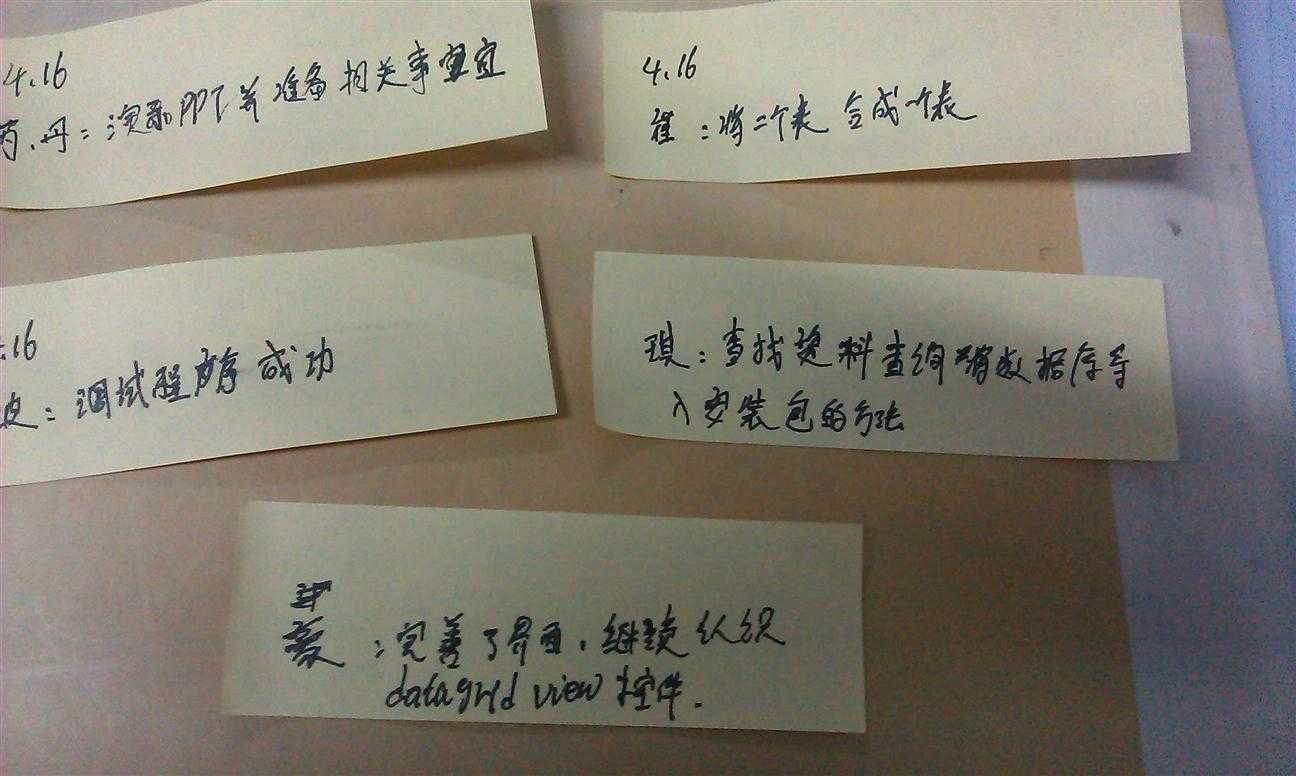 4.16
芮、丹：演示PPT并准备相关事宜
4.16
崔：将二个表合成一个表
4.16
皮：调试程序成功
琪：查找资料查询将数据库导
入安装包的方法
：完善了界面，继续认识
datagrid view 控件.